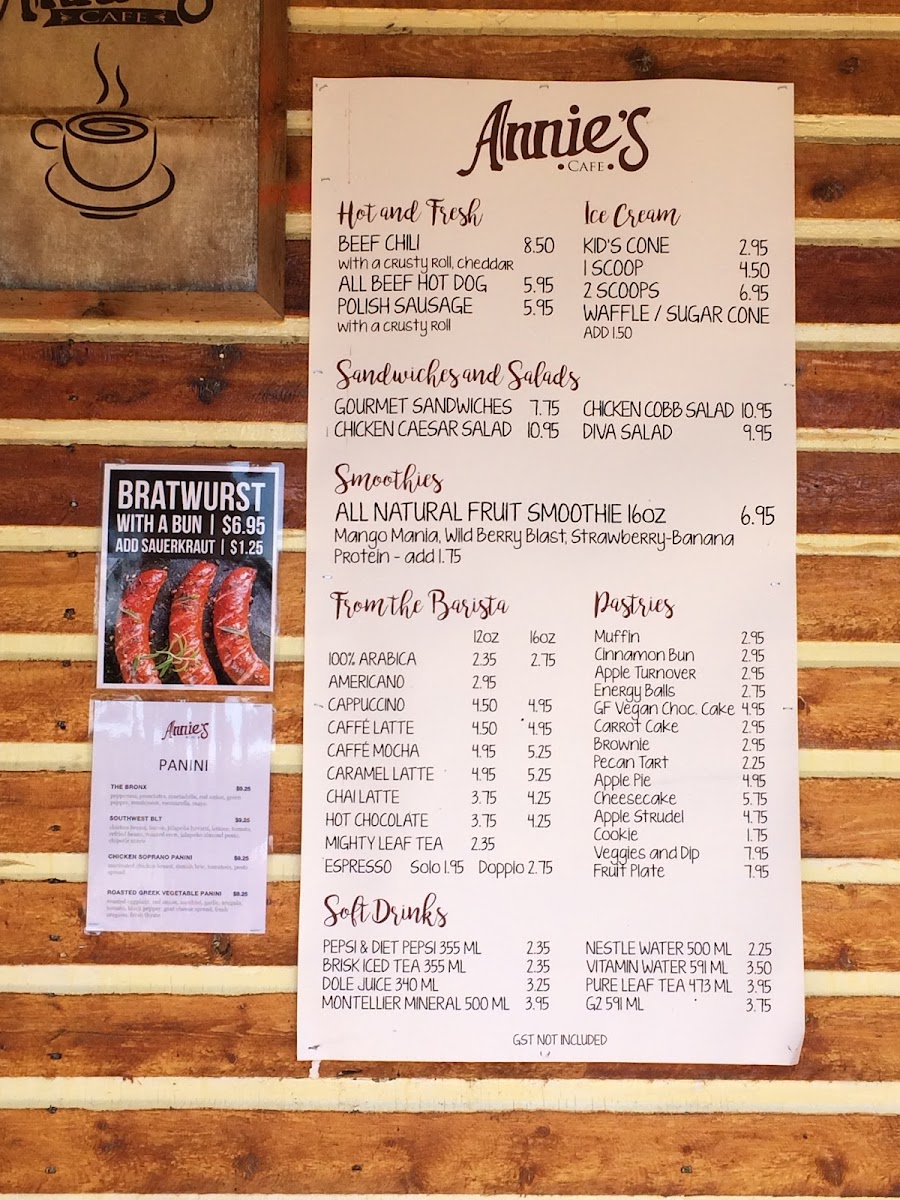 CAFE
Annie's
CAFE
Hot and Fresh
BEEF CHILI 8.50
with a crusty roll, cheddar
ALL BEEF HOT DOG 5.95
POLISH SAUSAGE 5.95
with a crusty roll
Ice Cream
KID'S CONE 2.95
1 SCOOP 4.50
2 SCOOPS 6.95
WAFFLE / SUGAR CONE
ADD 1.50
Sandwiches and Salads
GOURMET SANDWICHES 7.75
CHICKEN CAESAR SALAD 10.95
CHICKEN COBB SALAD 10.95
DIVA SALAD 9.95
Smoothies
ALL NATURAL FRUIT SMOOTHIE 16oz 6.95
Mango Mania, Wild Berry Blast, Strawberry-Banana
Protein - add 1.75
From the Barista
12oz 16oz
100% ARABICA 2.35 2.75
AMERICANO 2.95
CAPPUCCINO 4.50 4.95
CAFFÉ LATTE 4.50 4.95
CAFFÉ MOCHA 4.95 5.25
CARAMEL LATTE 4.95 5.25
CHAI LATTE 3.75 4.25
HOT CHOCOLATE 3.75 4.25
MIGHTY LEAF TEA 2.35
ESPRESSO Solo 1.95 Dopplo 2.75
Pastries
Muffin 2.95
Cinnamon Bun 2.95
Apple Turnover 2.95
Energy Balls 2.75
GF Vegan Choc. Cake 4.95
Carrot Cake 2.95
Brownie 2.95
Pecan Tart 2.25
Apple Pie 4.95
Cheesecake 5.75
Apple Strudel 4.75
Cookie 1.75
Veggies and Dip 7.95
Fruit Plate 7.95
Soft Drinks
PEPSI & DIET PEPSI 355 ML 2.35
BRISK ICED TEA 355 ML 2.35
DOLE JUICE 340 ML 3.25
MONTELLIER MINERAL 500 ML 3.95
NESTLE WATER 500 ML 2.25
VITAMIN WATER 591 ML 3.50
PURE LEAF TEA 473 ML 3.95
G2 591 ML 3.75
GST NOT INCLUDED
BRATWURST
WITH A BUN | $6.95
ADD SAUERKRAUT | $1.25
Annie's
PANINI
THE BRONX $9.25
SOUTHWEST BLT $9.25
CHICKEN SOPRANO PANINI $9.25
ROASTED GREEK VEGETABLE PANINI $9.25